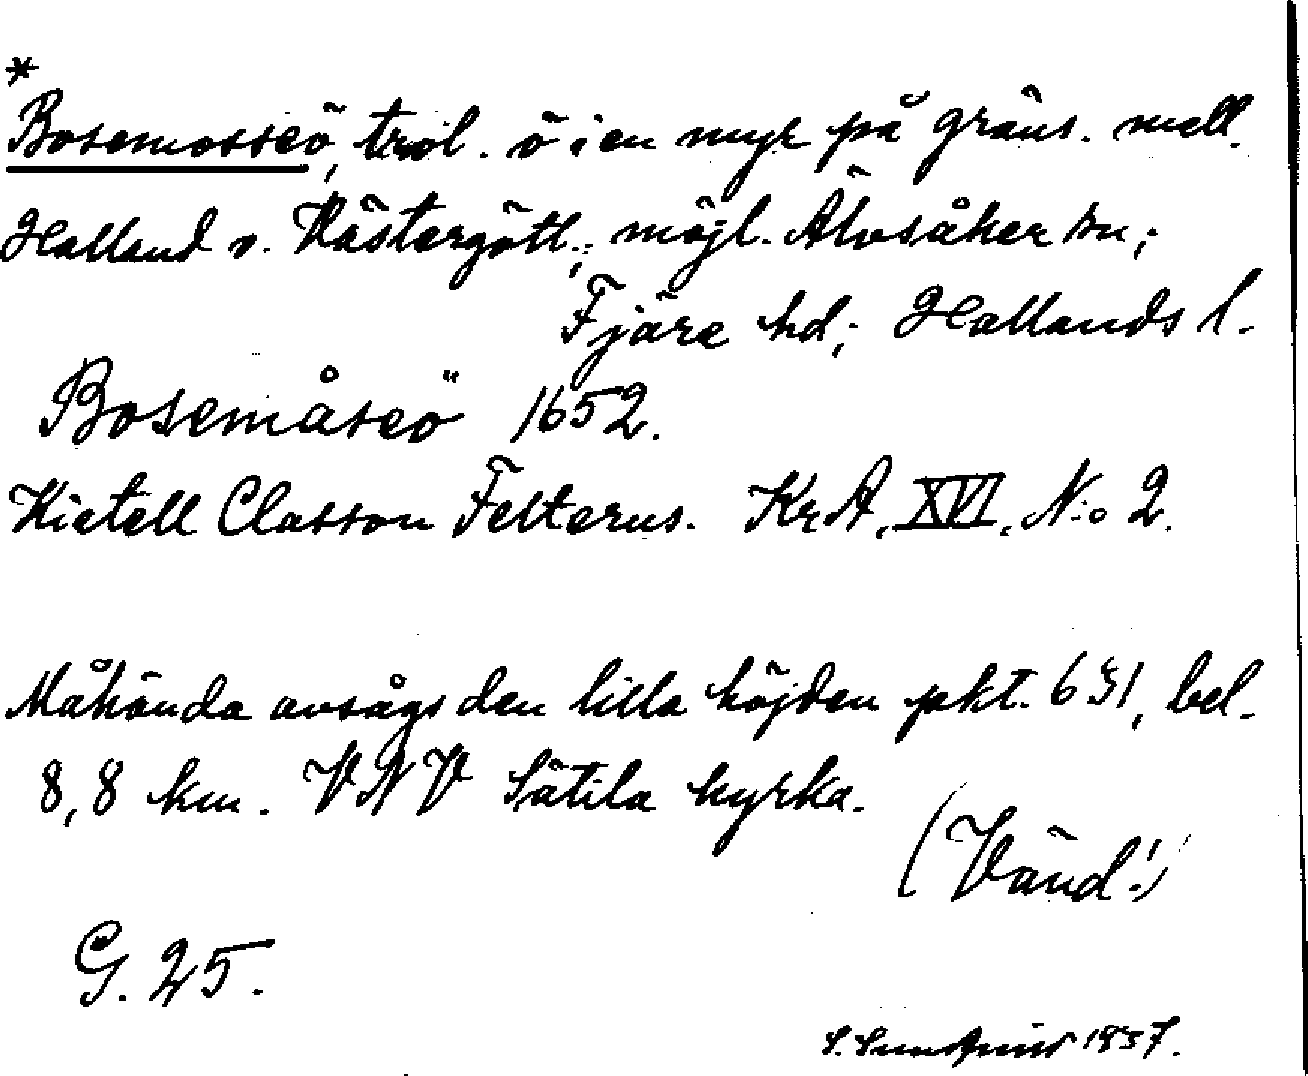 *
Bosemosseö, trol. ö i en myr på gräns. mell.
Halland o. Västergötl.; möjl. Älvsåker sn;
Fjäre hd; Hallands l.
Bosemåseö 1652.
Kietell Classon Felterus. KrA. XVI. N:o 2.
Måhända avsågs den lilla höjden pkt. 631, bel.
8,8 km. VNV Sätila kyrka.
(Vänd!)
G. 25.
S. Sundqvist 1937.